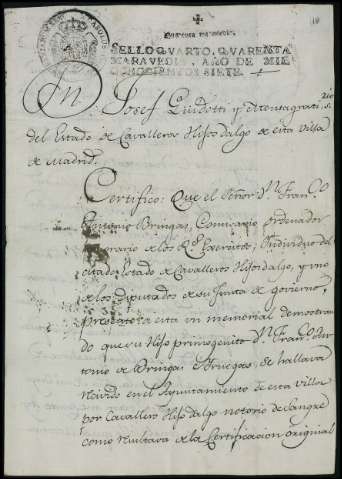 18
Quarenta maravedis.
SELLO QVARTO, QVARENTA
MARAVEDIS, AÑO DE MIL
OCHOCIENTOS SIETE.
Dn. Josef Guidotti y
del Estado de Cavalleros Hijosdalgo de esta Villa
de Madrid.
Certifico: Que el Señor Dn. Franco.
Antonio Bringas, Comisario ordenador
honorario de los Rs. Exercitos, Individuo del
citado Estado de Cavalleros Hijosdalgo, y uno
de los Diputados de su Junta de govierno,
presentó a esta un memorial demostran
do que su Hijo primogenito Dn. Franco. An
tonio de Bringas se hallava
recivido en el Ayuntamiento de esta Villa
por Cavallero Hijodalgo notorio de Sangre
como resultava de la Certificacion original